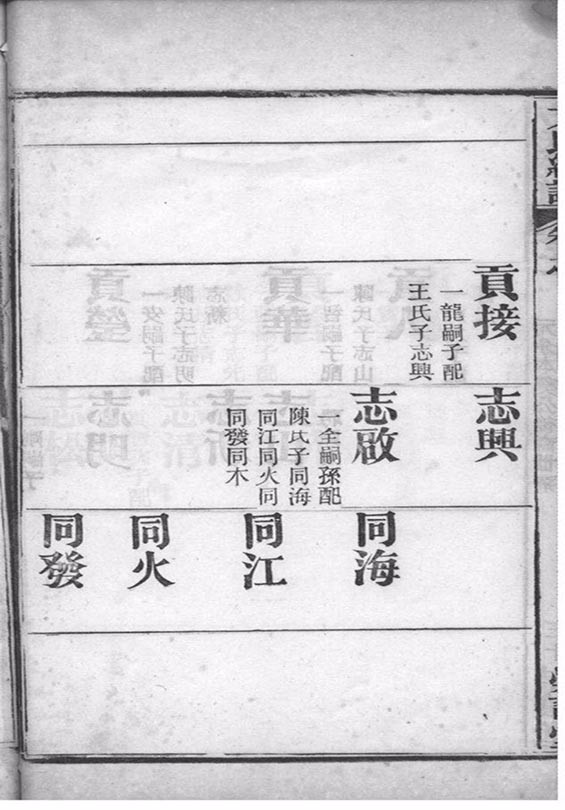 貢接
一龍嗣子配
王氏子志興
志興
志啟
一全嗣孫配
陳氏子同海
同江同火同
同發同木
同海
同江
同火
同發